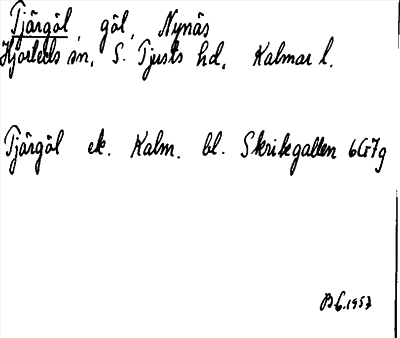 Tjärgöl, göl, Nynäs
Hjorteds sn, S. Tjusts hd, Kalmar l.
Tjärgöl ek. Kalm. bl. Skrikegallen 6G7g
1953